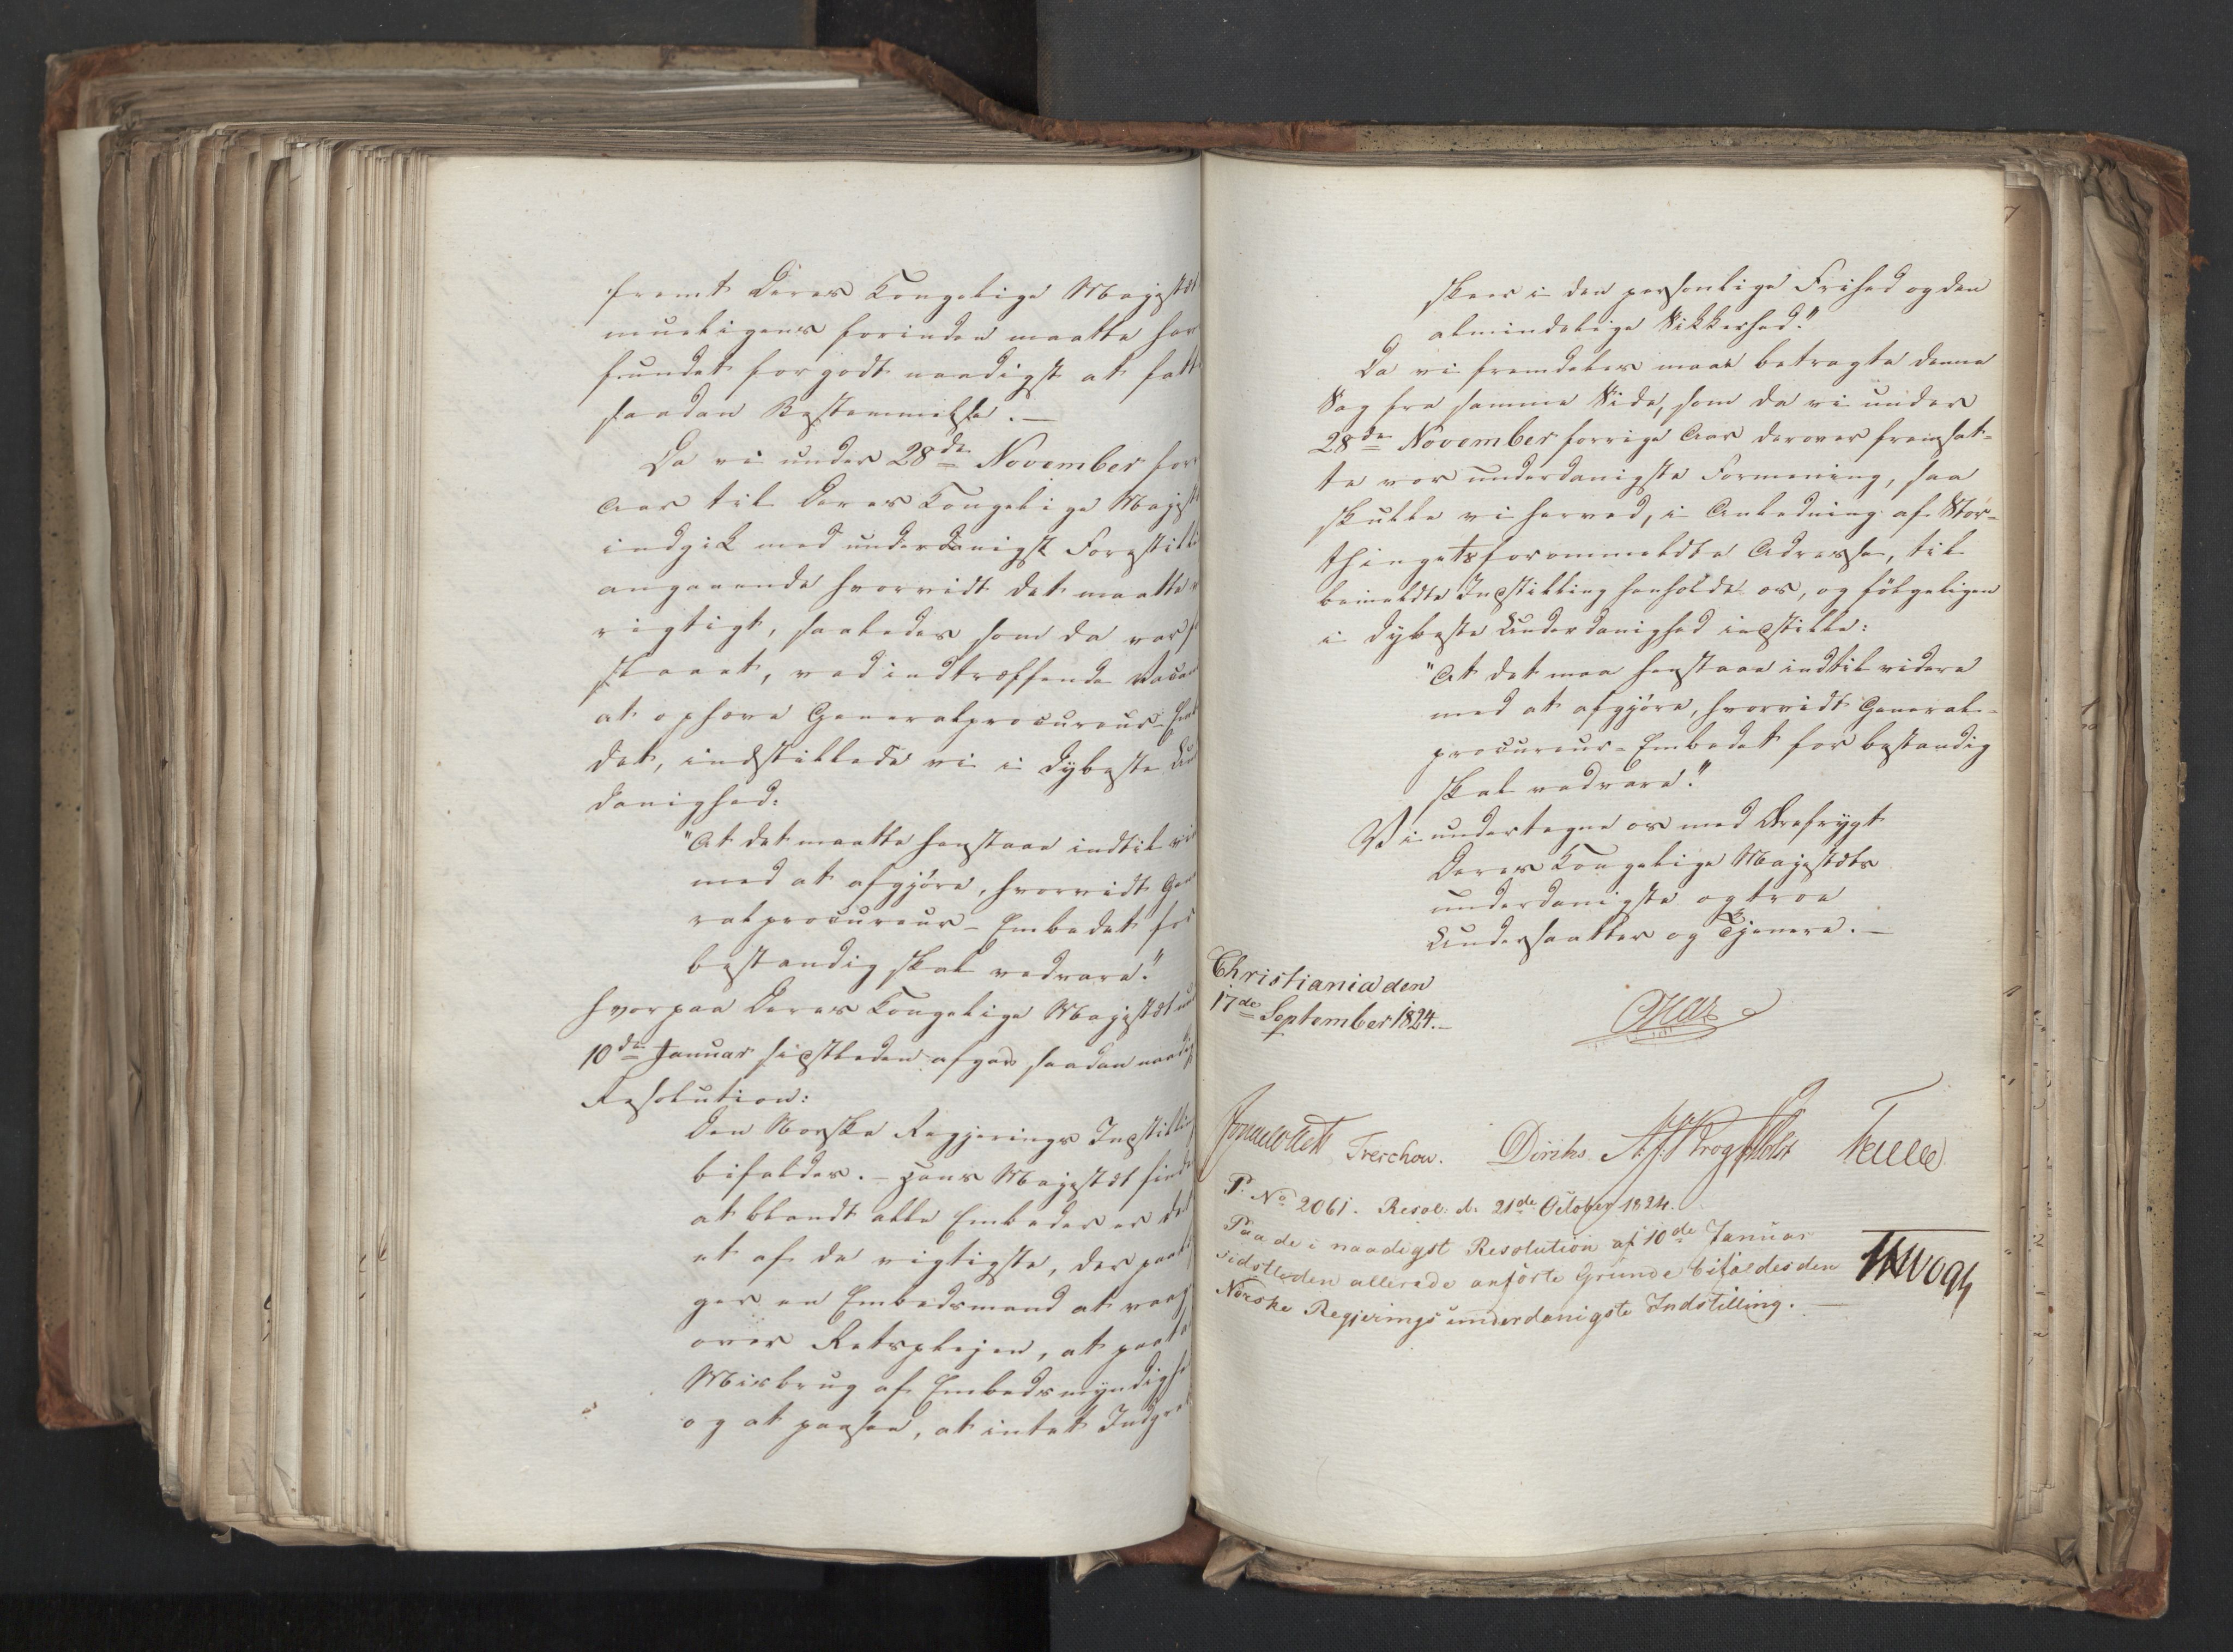 fremt Deres Kongelige Majestæt
mueligens forinden maatte hav
fundet forgodt naadigst at fatt
saadan Bestemmelse. —
Da vi under 28de November for
Aar til Deres Kongelige Majest
indgik med underdanigst Forestilli
angaaende hvorvidt det maatte v
rigtigt, saaledes som da var f
skeet, ved indtræffende Vacan
at ophæve Generalprocureur-Em
det, indstillede vi i dybeste Un
danighed:
"At det maatte henstaae indtil vi
med at afgjöre, hvorvidt Gen
ralprocureur-Embedet for
bestandig skal vedvare."
hvorpaa Deres Kongelige Majestæt un
10de Januar sidstleden afgav saadan naadig
Resolution:
Den Norske Regjerings Indstilling
bifaldes. – Hans Majestæt find
at blandt alle Embeder er det
et af de vigtigste, der paal
ger en Embedsmand at vaag
over Retsplejen, at paat
Misbrug af Embedsmyndighe
og at paasee, at intet Indgre
skeer i den personlige Frihed og den
almindelige Sikkerhed."
Da vi fremdeles maae betragte denne
Sag fra samme Side, som da vi under
28de November forrige Aar derover fremsat-
te vor underdanigste Formening, saa
skulle vi herved, i Anledning af Stor-
thingets forommeldte Adresse, til
bemeldte Indstilling henholde os, og fölgeligen
i dybeste Underdanighed indstille:
"At det maa henstaae indtil videre
med at afgjöre, hvorvidt General-
procureur-Embedet for bestandig
skal vedvare."
Vi undertegne os med Ærefrygt
Deres Kongelige Majestæts
underdanigste og troe
Undersaatter og Tjenere. —
Christiania den
17de September 1824. —
Treschow. Diriks
P. No 2061. Resol: d. 21de October 1824.
Paa de i naadigst Resolution af 10de Januar
sidstleden allerede anförte Grunde bifaldes den
Norske Regjerings underdanigste Indstilling. —